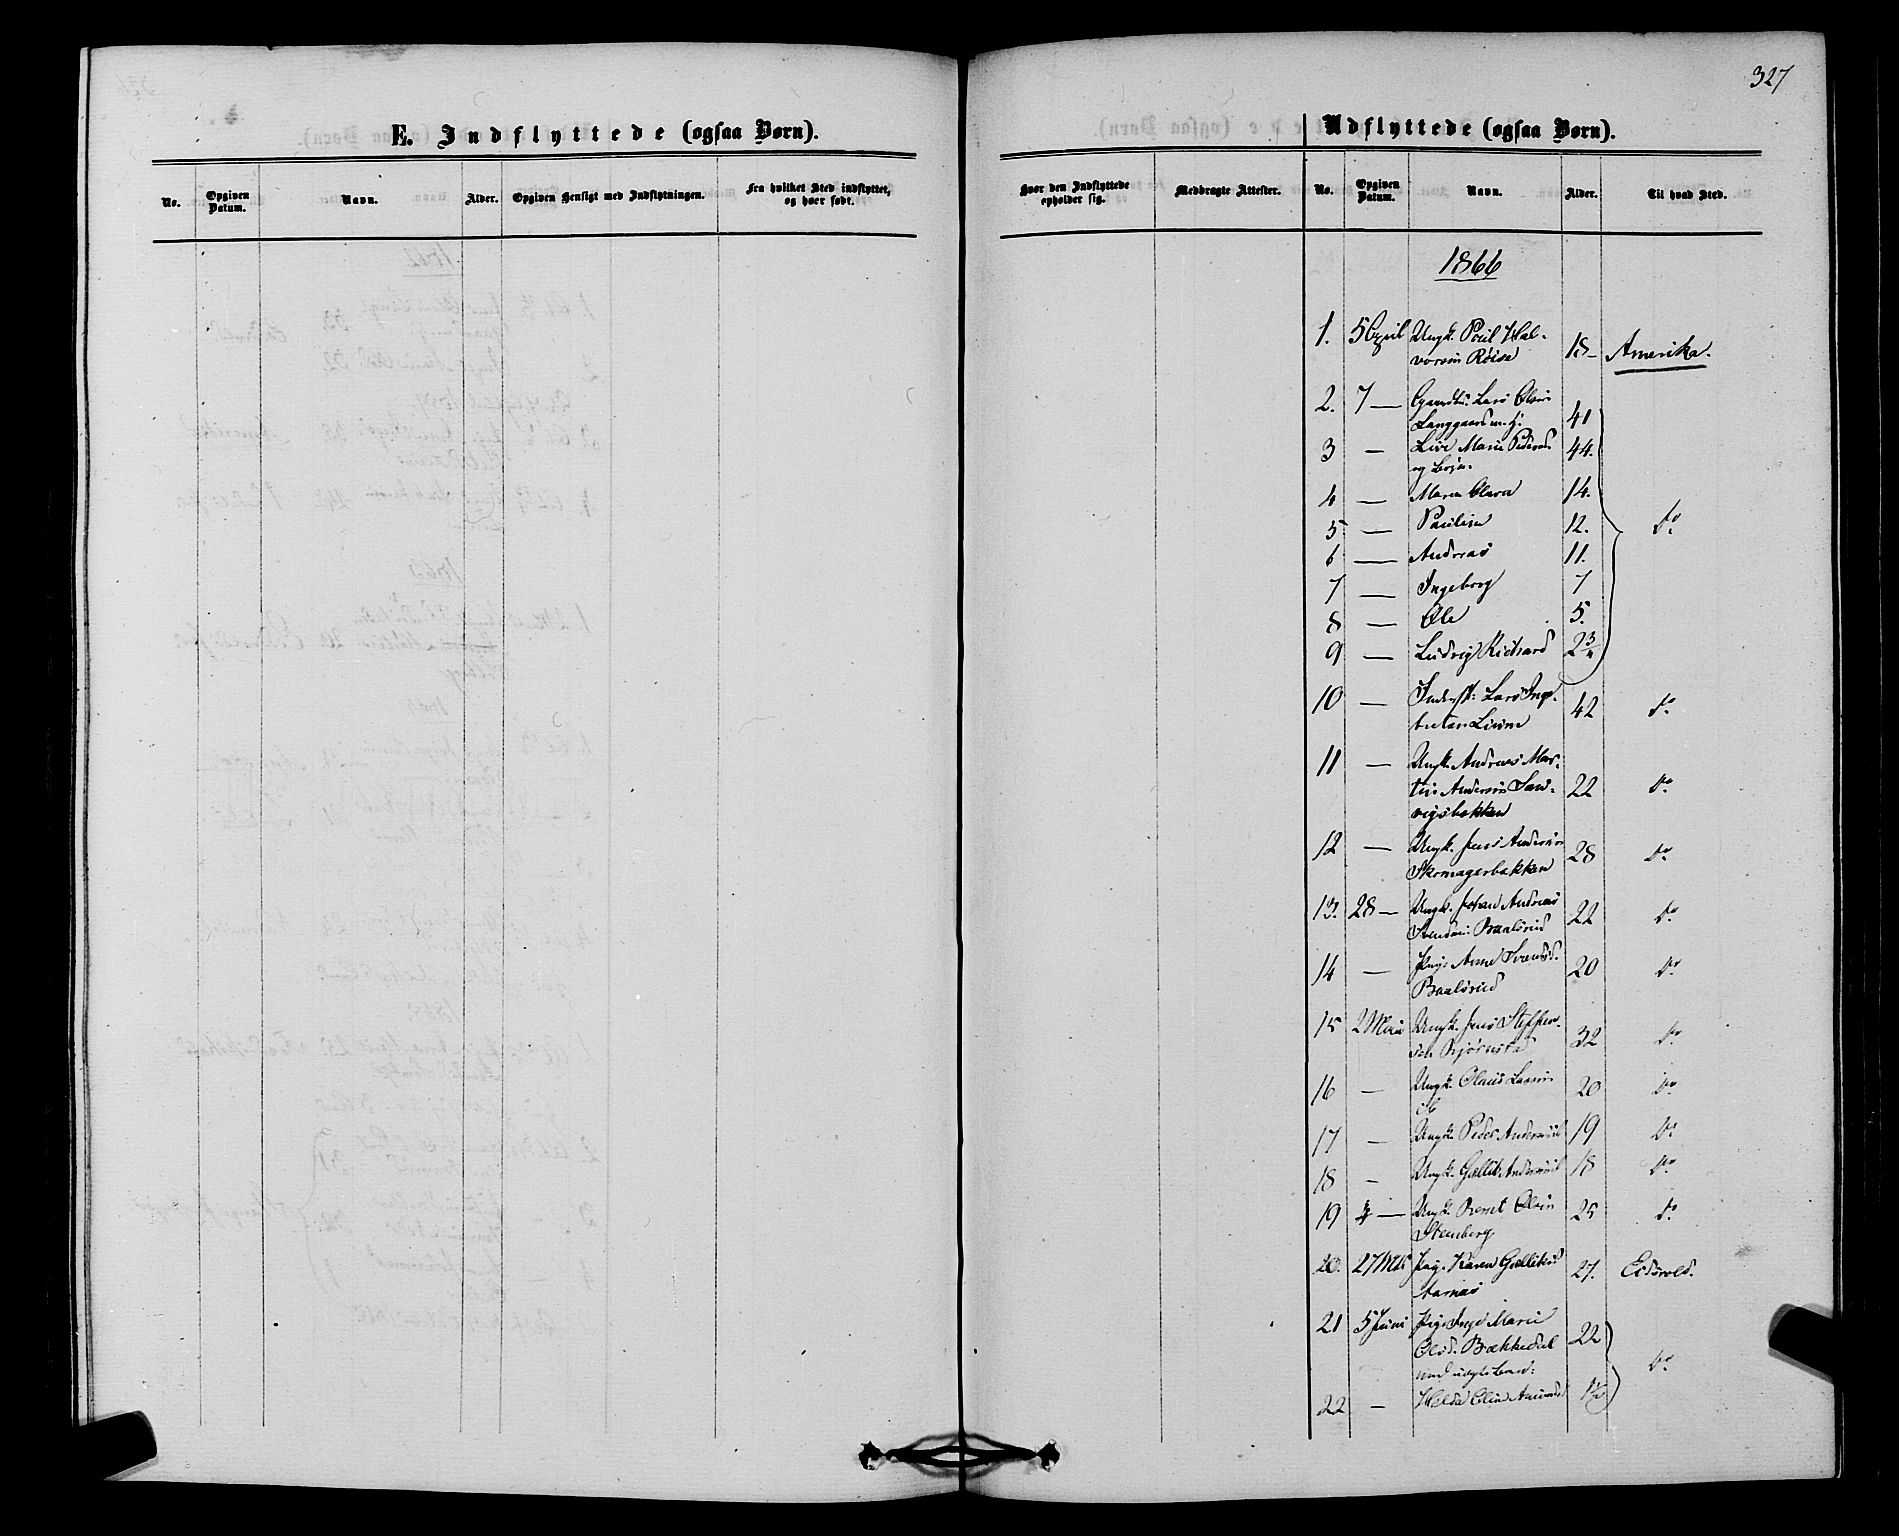 327
E. Indflyttede (ogsaa Børn).
Udflyttede (ogsaa Børn).
No. Opgiven Datum. Navn. Alder. Opgiven Hensigt med Indflytningen. Fra hvilket Sted indflyttet, og hvor født.
Hvor den Indflyttede opholder sig. Medbragte Attester. No. Opgiven Datum. Navn. Alder. Til hvad Sted.
1866
1. 5 April Ungk. Poul Hal-
vorsen Røise 18 Amerika.
2. 7 — Gaardbr. Lars Olsen
Langgaard m. H. 41
3 — Live Marie Pedersd.
og Børn. 44.
4 — Maren Olava 14.
5 — Pauline 12. do
6 — Andreas 11.
7 — Ingeborg 7
8 — Ole 5.
9 — Ludvig Richard 2 3/4
10 — Inderst. Lars Inge-
bretsen 42 do
11 — Ungk. Andreas Mar-
tin Andersen Sand-
vigsbakken 22 do
12 — Ungk. Jens Andersen
Skomagerbakken 28 do
13. 28 — Ungk. Johan Andreas
Svendsen Baalsrud 22 do
14 — Pige Anne Svendsd.
Baalsrud 20 do
15 2 Mai Ungk. Jens Steffen-
sen Bjørnstad 32 do
16 — Ungk. Olaus Larsen
ib 20 do
17 — Ungk. Peder Andersen ib 19 do
18 — Ungk. Gullik Andersen ib 18 do
19 — Ungk. Bernt Olsen
Steenberg 25 do
20. 27 Mai Pige Karen Gulliksd.
Aarnæs 27. Eidsvold.
21 5 Juni Pige Inge Marie
Olsd. Bækkedal 22
med uægte Barn: do
22 — Helda Oline 1½